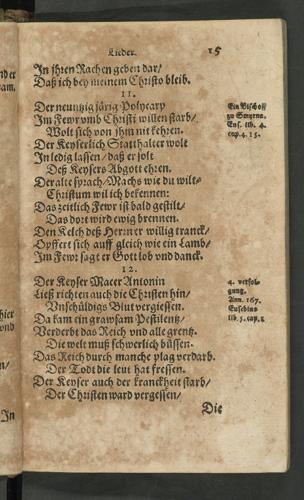 Lieder. 15
In jhren Rachen geben dar/
Daß ich bey meinem Christo bleib.
11.
Der neuntzig järig Polycarp
Im Fewr vmb Christi willen starb/
Wolt sich von jhm nit kehren.
Der Keyserlich Statthalter wolt
In ledig lassen/ daß er solt
Deß Keysers Abgott ehren.
Der alte sprach/ Machs wie du wilt
Christum wil ich bekennen:
Das zeitlich Fewr ist bald gestilt/
Das dort wird ewig brennen.
Den Kelch deß Herrn er willig tranck/
Opffert sich auff gleich wie ein Lamb/
Im Fewr sagt er Gott lob vnd danck.
Ein Bischoff
zu Smyrna.
Eus. lib. 4.
cap. 4. 15.
12.
Der Keyser Marc Antonin
Ließ richten auch die Christen hin/
Vnschüldigs Blut vergiessen.
Da kam ein grawsam Pestilentz/
Verderbt das Reich vnd alle grentz.
Die welt muß schwerlich büssen.
Das Reich durch manche plag verdarb.
Der Todt die leut hat fressen.
Der Keyser auch der kranckheit starb/
Der Christen ward vergessen/
4. verfol-
gung.
Ann. 167.
Eusebius
lib. 5. cap. 1
Die
In